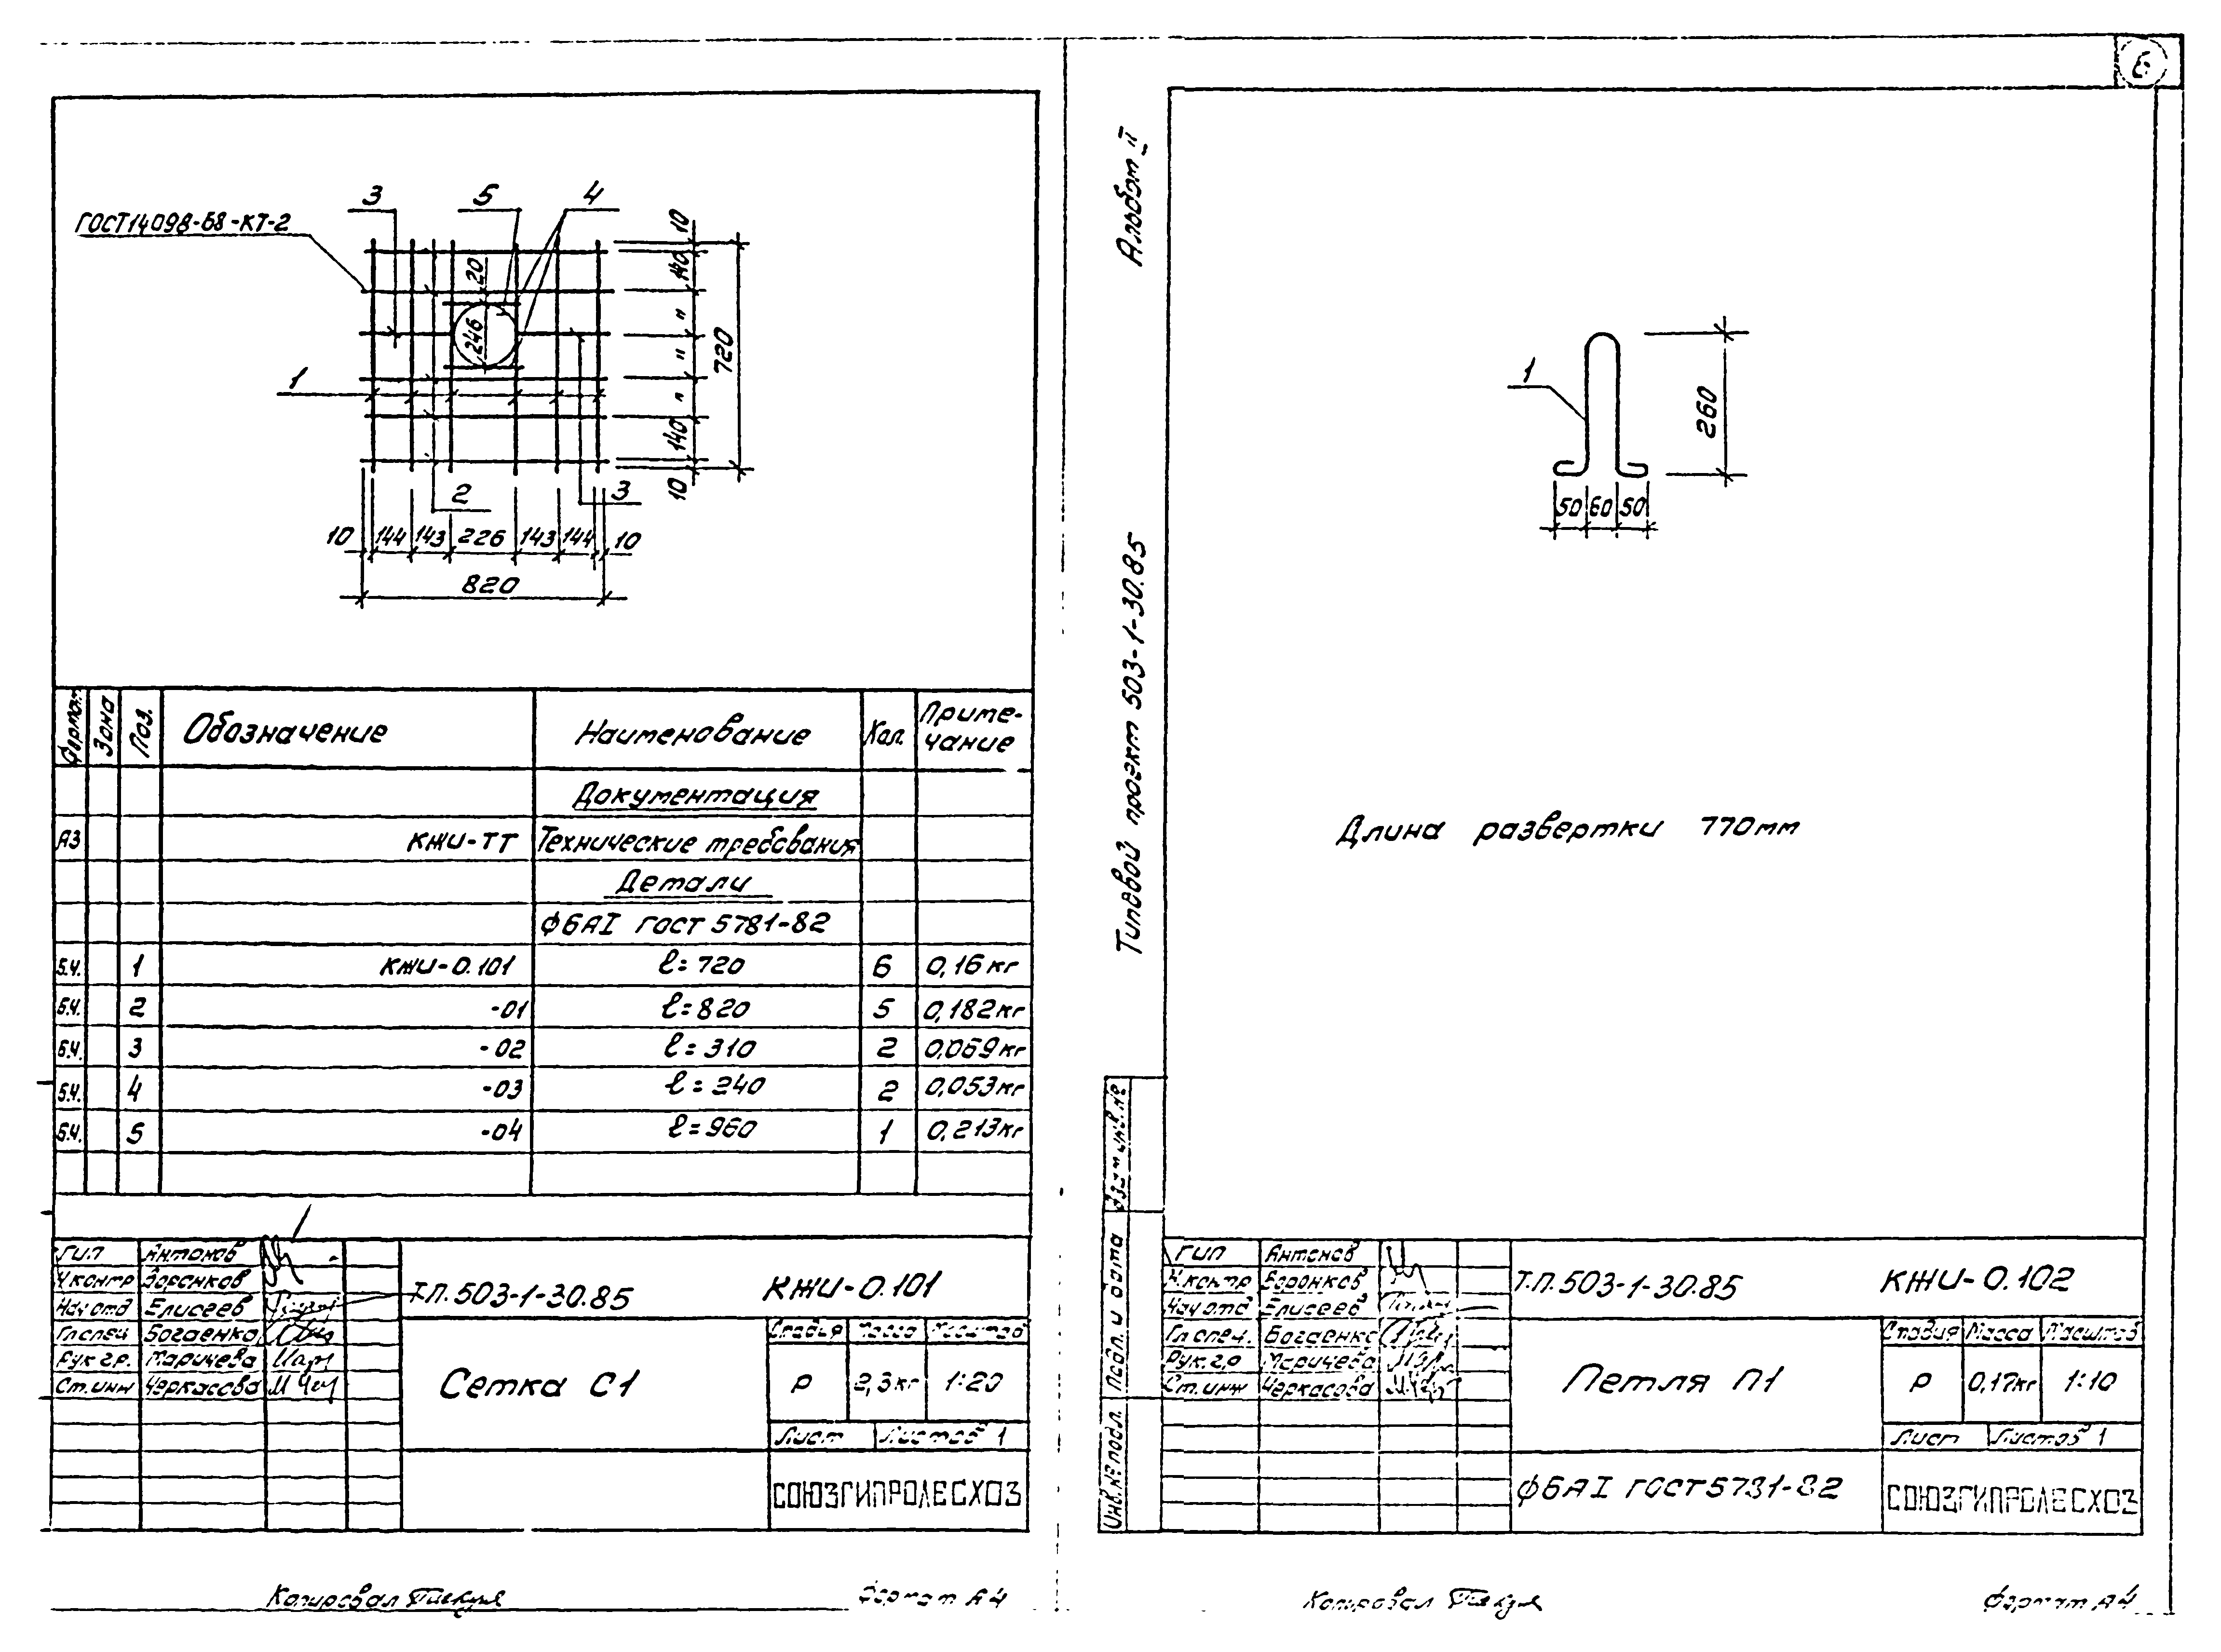 6
3
5
4
ГОСТ14098-68-КТ-2
20
246
1
2
3
10
140
"
"
"
140
10
720
10 144 143 226 143 144 10
820
Формат Зона Поз. Обозначение Наименование Кол. Приме-
чание
Документация
А3 КЖИ-ТТ Технические требования
Детали
Ф6АI ГОСТ 5781-82
Б.Ч. 1 КЖИ-0.101 ℓ=720 6 0,16кг
Б.Ч. 2 -01 ℓ=820 5 0,182кг
Б.Ч. 3 -02 ℓ=310 2 0,069кг
Б.Ч. 4 -03 ℓ=240 2 0,053кг
Б.Ч. 5 -04 ℓ=960 1 0,213кг
ГИП Антонов
Н.контр Воронков
Нач отд Елисеев
Гл.спец Богаенко
Рук.гр. Маричева
Ст.инж Черкасова
Т.П.503-1-30.85 КЖИ-0.101
Сетка С1
Стадия Масса Масштаб
Р 2,3кг 1:20
Лист Листов 1
СОЮЗГИПРОЛЕСХОЗ
Копировал
Формат А4
Альбом II
Типовой проект 503-1-30.85
1
260
50 60 50
Длина развертки 770мм
Взам инв.№
Подп. и дата
Инв.№ подл.
ГИП Антонов
Н.контр Воронков
Нач отд Елисеев
Гл спец. Богаенко
Рук.гр Маричева
Ст.инж Черкасова
Т.П.503-1-30.85 КЖИ-0.102
Петля П1
Стадия Масса Масштаб
Р 0,17кг 1:10
Лист Листов 1
Ф6АI ГОСТ5781-82
СОЮЗГИПРОЛЕСХОЗ
Копировал
Формат А4